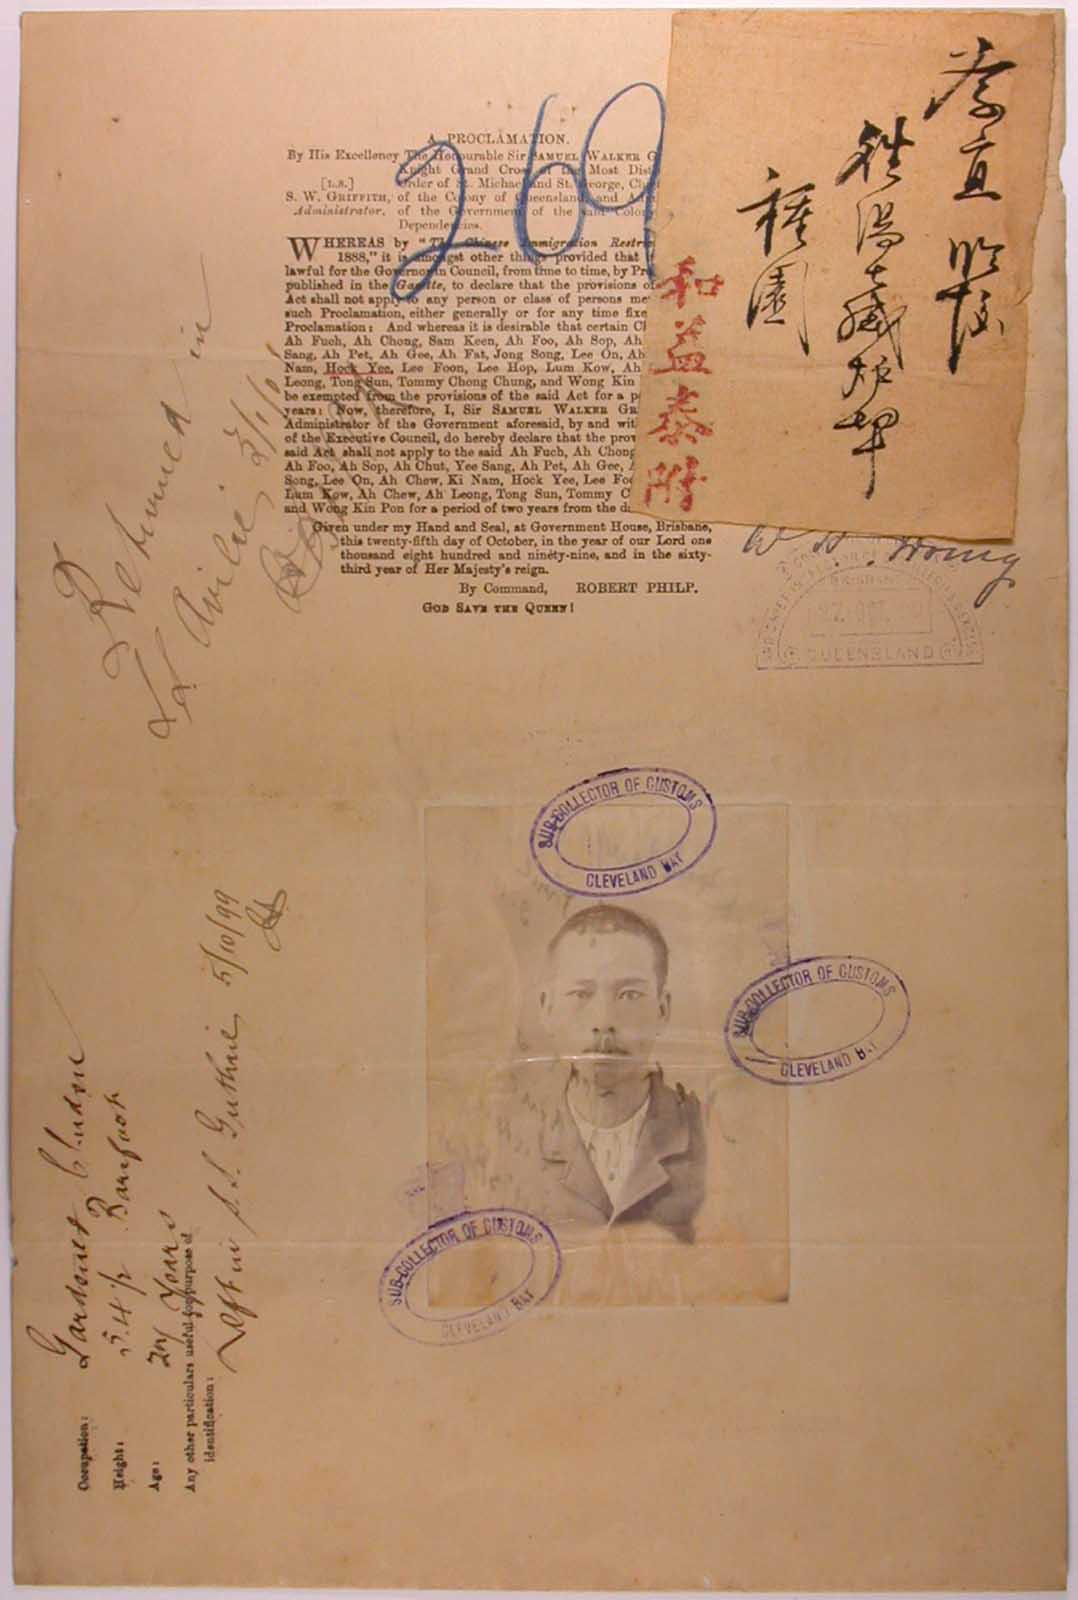 269
A PROCLAMATION.
By His Excellency The Honourable Sir SAMUEL WALKER G
Knight Grand Cross of the Most Dist
[L.S.] Order of St. Michael and St. George, Chi
S. W. GRIFFITH, of the Colony of Queensland, and Adm
Administrator. of the Government of the said Colony
Dependencies.
WHEREAS by "The Chinese Immigration Restric
1888," it is amongst other things provided that
lawful for the Governor in Council, from time to time, by Pro
published in the Gazette, to declare that the provisions of
Act shall not apply to any person or class of persons me
such Proclamation, either generally or for any time fixe
Proclamation: And whereas it is desirable that certain Ch
Ah Fuch, Ah Chong, Sam Keen, Ah Foo, Ah Sop, Ah
Sang, Ah Pet, Ah Gee, Ah Fat, Jong Song, Lee On, Ah
Nam, Hock Yee, Lee Foon, Lee Hop, Lum Kow, Ah
Leong, Tong Sun, Tommy Chong Chung, and Wong Kin
be exempted from the provisions of the said Act for a p
years: Now, therefore, I, Sir SAMUEL WALKER GR
Administrator of the Government aforesaid, by and wit
of the Executive Council, do hereby declare that the prov
said Act shall not apply to the said Ah Fuch, Ah Chong
Ah Foo, Ah Sop, Ah Chut, Yee Sang, Ah Pet, Ah Gee, A
Song, Lee On, Ah Chew, Ki Nam, Hock Yee, Lee Foo
Lum Kow, Ah Chew, Ah Leong, Tong Sun, Tommy C
and Wong Kin Pon for a period of two years from the da
Given under my Hand and Seal, at Government House, Brisbane,
this twenty-fifth day of October, in the year of our Lord one
thousand eight hundred and ninety-nine, and in the sixty-
third year of Her Majesty's reign.
By Command, ROBERT PHILP.
GOD SAVE THE QUEEN!
種園
和益泰附
BRISBANE
QUEENSLAND
Returned in
SUB-COLLECTOR OF CUSTOMS
CLEVELAND BAY
SUB-COLLECTOR OF CUSTOMS
CLEVELAND BAY
SUB-COLLECTOR OF CUSTOMS
CLEVELAND BAY
Occupation: Gardener
Height: 5.4½ Barefoot
Age: Years
Any other particulars useful for purpose of
identification: Left in S.S. Guthrie 5/10/99